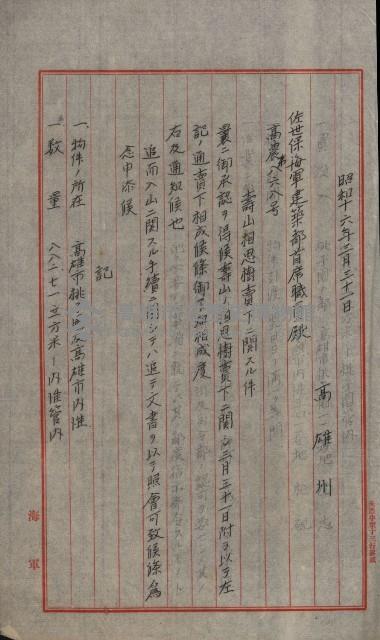 昭和十六年三月三十一日
高雄州
佐世保海軍建築部首席職員殿
高農 八六八号
壽山相思樹賣下ニ関スル件
曩ニ御承認ヲ得候壽山ノ相思樹賣下ニ関シ三月三十一日附ヲ以テ左
記ノ通賣下相成候條御了知相成度
右及通知候也
追而入山ニ関スル手續ニ関シテハ追テ文書ヲ以テ照會可致候條為
念申添候
記
一、物件ノ所在 高雄市桃 高雄市内惟
一、数量 八八二七一立方米 内惟管内
海軍